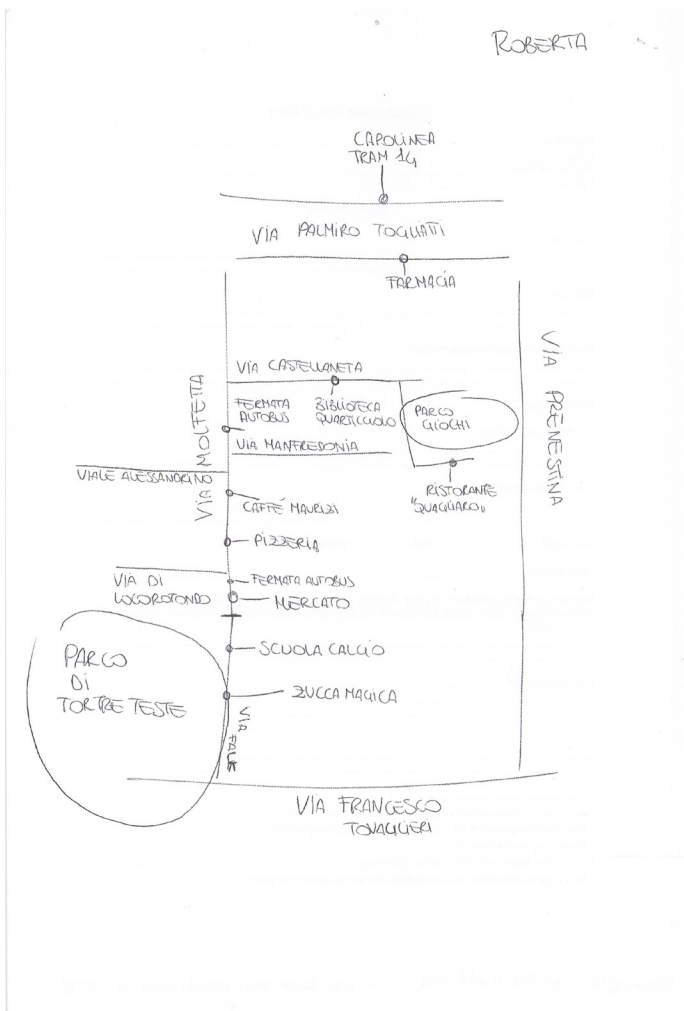 ROBERTA
CAPOLINEA
TRAM 14
VIA PALMIRO TOGLIATTI
FARMACIA
VIA PRENESTINA
VIA CASTELLANETA
VIA MOLFETTA
FERMATA
AUTOBUS
BIBLIOTECA
QUARTICCIOLO
PARCO
GIOCHI
VIA MANFREDONIA
VIALE ALESSANDRINO
RISTORANTE
"QUAGLIARO"
CAFFÉ MAURIZI
PIZZERIA
VIA DI
LOCOROTONDO
FERMATA AUTOBUS
MERCATO
SCUOLA CALCIO
PARCO
DI
TORTRE TESTE
ZUCCA MAGICA
VIA FALK
VIA FRANCESCO
TOVAGLIERI